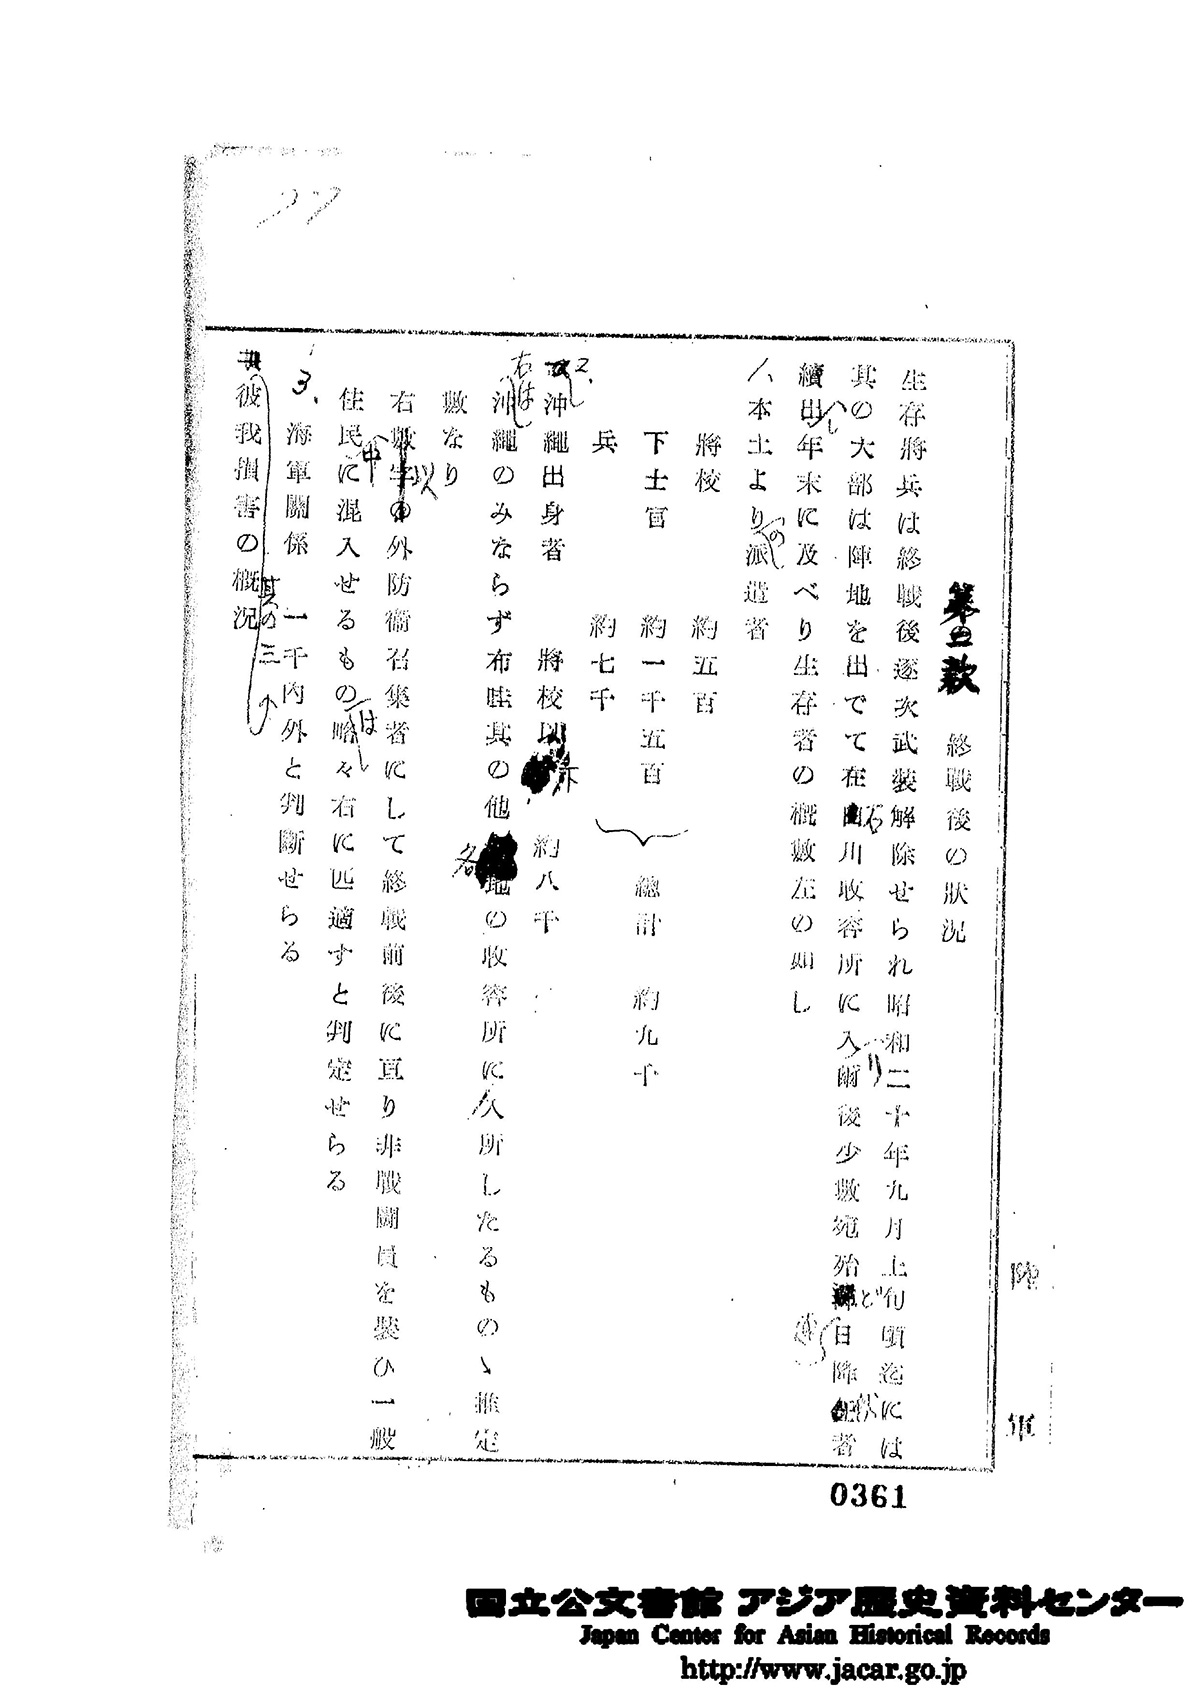 第三款 終戰後の狀況
生存將兵は終戰後逐次武裝解除せられ昭和二十年九月上旬頃迄には
其の大部は陣地を出でて在石川收容所に入り爾後少數宛殆ど日降伏者
續出し年末に及べり生存者の槪數左の如し
本土よりの派遣者
將校 約五百
下士官 約一千五百
兵 約七千
總計 約九千
2.
沖繩出身者 將校以下 約八千
右は
沖繩のみならず布哇其の他各地の收容所に入所したるものゝ推定
數なり
右以外防衞召集者にして終戰前後に亘り非戰鬪員を裝ひ一般
住民中に混入せるものは略々右に匹適すと判定せらる
3. 海軍關係 一千內外と判斷せらる
彼我損害の槪況
其の三
陸軍
0361
国立公文書館 アジア歴史資料センター
Japan Center for Asian Historical Records
http://www.jacar.go.jp